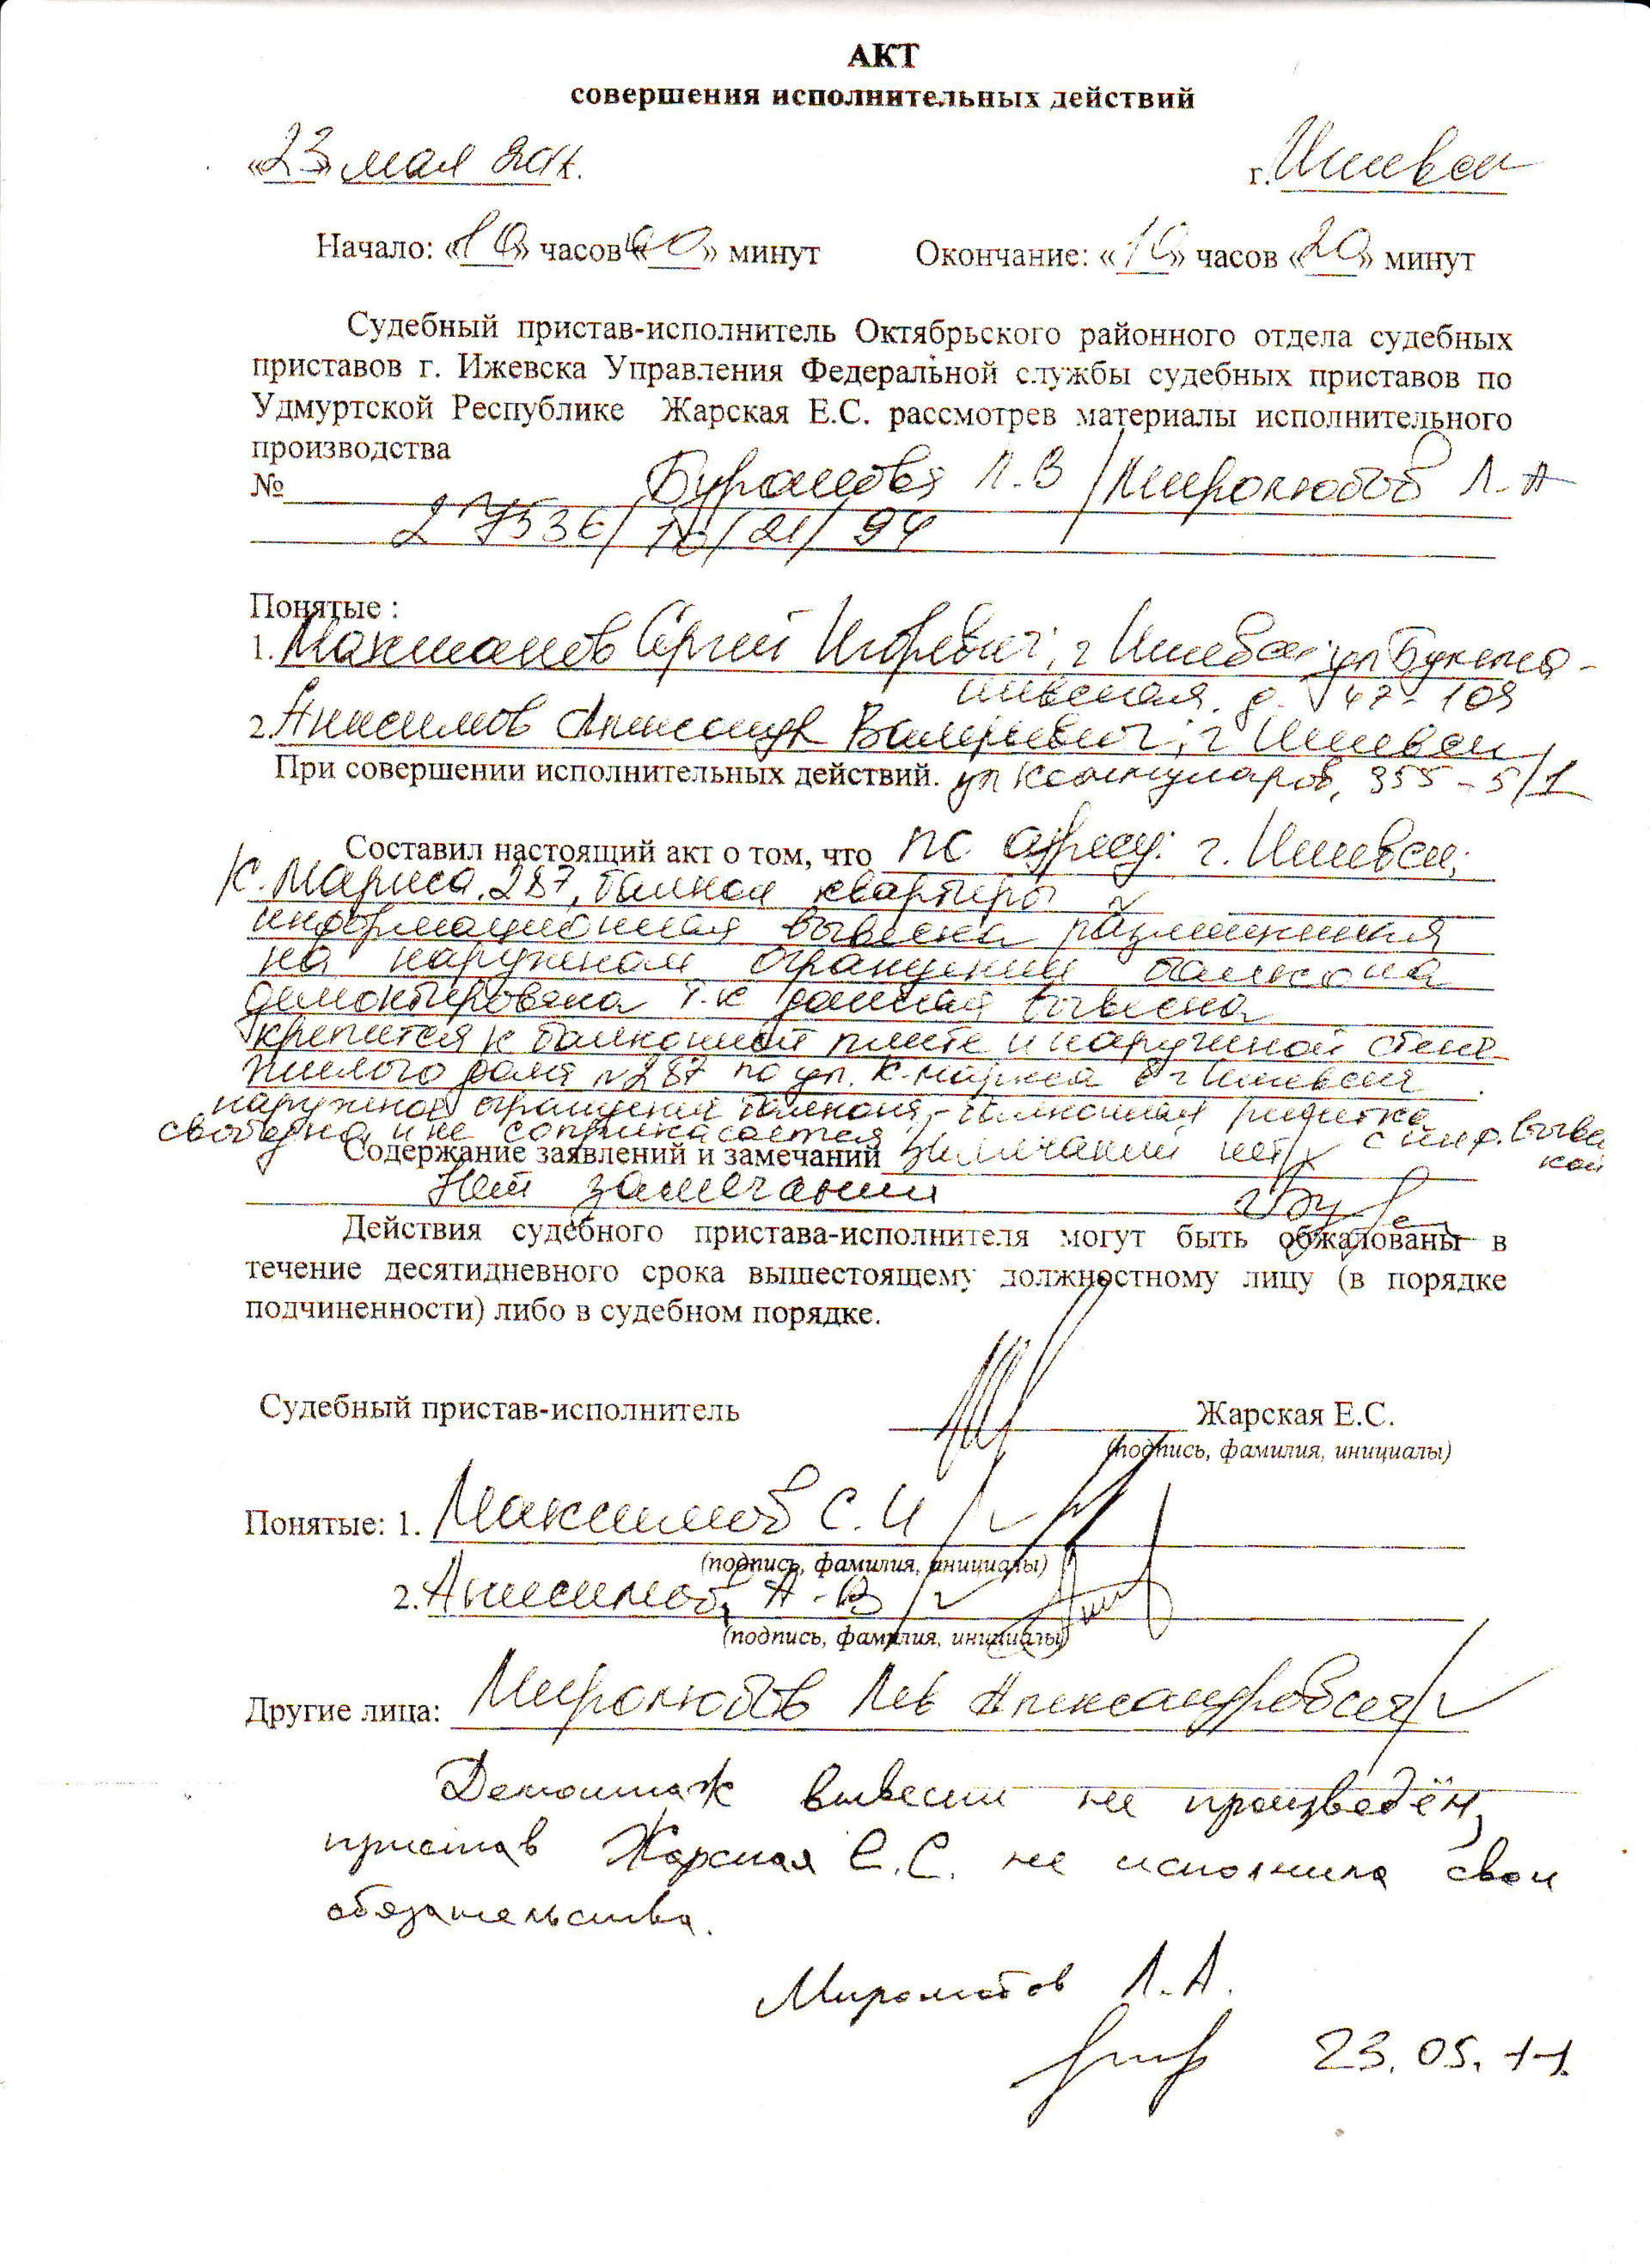 АКТ
совершения исполнительных действий
«23» мая 2011г. г. Ижевск
Начало: «10» часов «00» минут Окончание: «10» часов «20» минут
Судебный пристав-исполнитель Октябрьского районного отдела судебных
приставов г. Ижевска Управления Федеральной службы судебных приставов по
Удмуртской Республике Жарская Е.С. рассмотрев материалы исполнительного
производства
№ Л.В / Миролюбов Л.А
/21/94
Понятые :
1. Сергей Игоревич, г Ижевск ул
д. 47-109
2. Анисимов Александр Валерьевич, г Ижевск
При совершении исполнительных действий. ул Коммунаров, 355-5/1
Составил настоящий акт о том, что по адресу: г. Ижевск,
К. Маркса, 287, балкон квартиры
информационная вывеска
на наружном ограждении балкона
демонтирована т.к данная вывеска
крепится к балконной плите и наружной стене
жилого дома №287 по ул. К. Маркса в г Ижевске
наружное ограждение балкона, - балконная решетка
свободна и не соприкасается с инф. вывес
кой
Содержание заявлений и замечаний замечаний нет
Нет замечаний
Действия судебного пристава-исполнителя могут быть обжалованы в
течение десятидневного срока вышестоящему должностному лицу (в порядке
подчиненности) либо в судебном порядке.
Судебный пристав-исполнитель Жарская Е.С.
(подпись, фамилия, инициалы)
Понятые: 1. Максимов С.И
(подпись, фамилия, инициалы)
2. Анисимов А.В
(подпись, фамилия, инициалы)
Другие лица: Миролюбов Лев
Демонтаж вывески не произведён,
пристав Жарская Е.С. не исполнила свои
обязательства.
Миролюбов Л.А.
23.05.11.